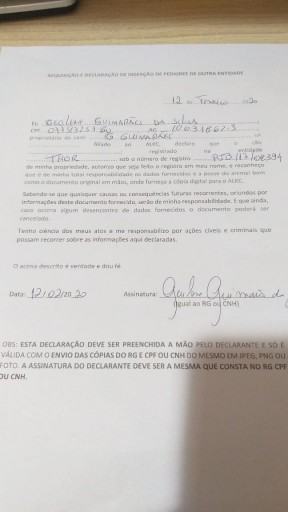 REQUISIÇÃO E DECLARAÇÃO DE INSERÇÃO DE PEDIGREE DE OUTRA ENTIDADE
12 de Fevereiro de 2020
Eu GUIMARÃES DA SILVA
CPF RG
proprietário do canil GUIMARÃES
filiado ao ALKC, declaro que o cão
registrado na entidade
THOR sob o número de registro
de minha propriedade, autorizo que seja feito o registro em meu nome, e reconheço
que é de minha total responsabilidade os dados fornecidos e a posse do animal bem
como o documento original em mãos, onde forneço a cópia digital para o ALKC.
Sabendo-se que quaisquer causas ou consequências futuras recorrentes, oriundos por
informações deste documento fornecido, serão de minha responsabilidade. E que ainda,
caso ocorra algum desencontro de dados fornecidos o documento poderá ser
cancelado.
Tenho ciência dos meus atos e me responsabilizo por ações cíveis e criminais que
possam recorrer sobre as informações aqui declaradas.
O acima descrito é verdade e dou fé.
Data: 12/02/2020 Assinatura:
(Igual ao RG ou CNH)
OBS: ESTA DECLARAÇÃO DEVE SER PREENCHIDA A MÃO PELO DECLARANTE E SÓ É
VÁLIDA COM O ENVIO DAS CÓPIAS DO RG E CPF OU CNH DO MESMO EM JPEG, PNG OU
FOTO. A ASSINATURA DO DECLARANTE DEVE SER A MESMA QUE CONSTA NO RG CPF
OU CNH.